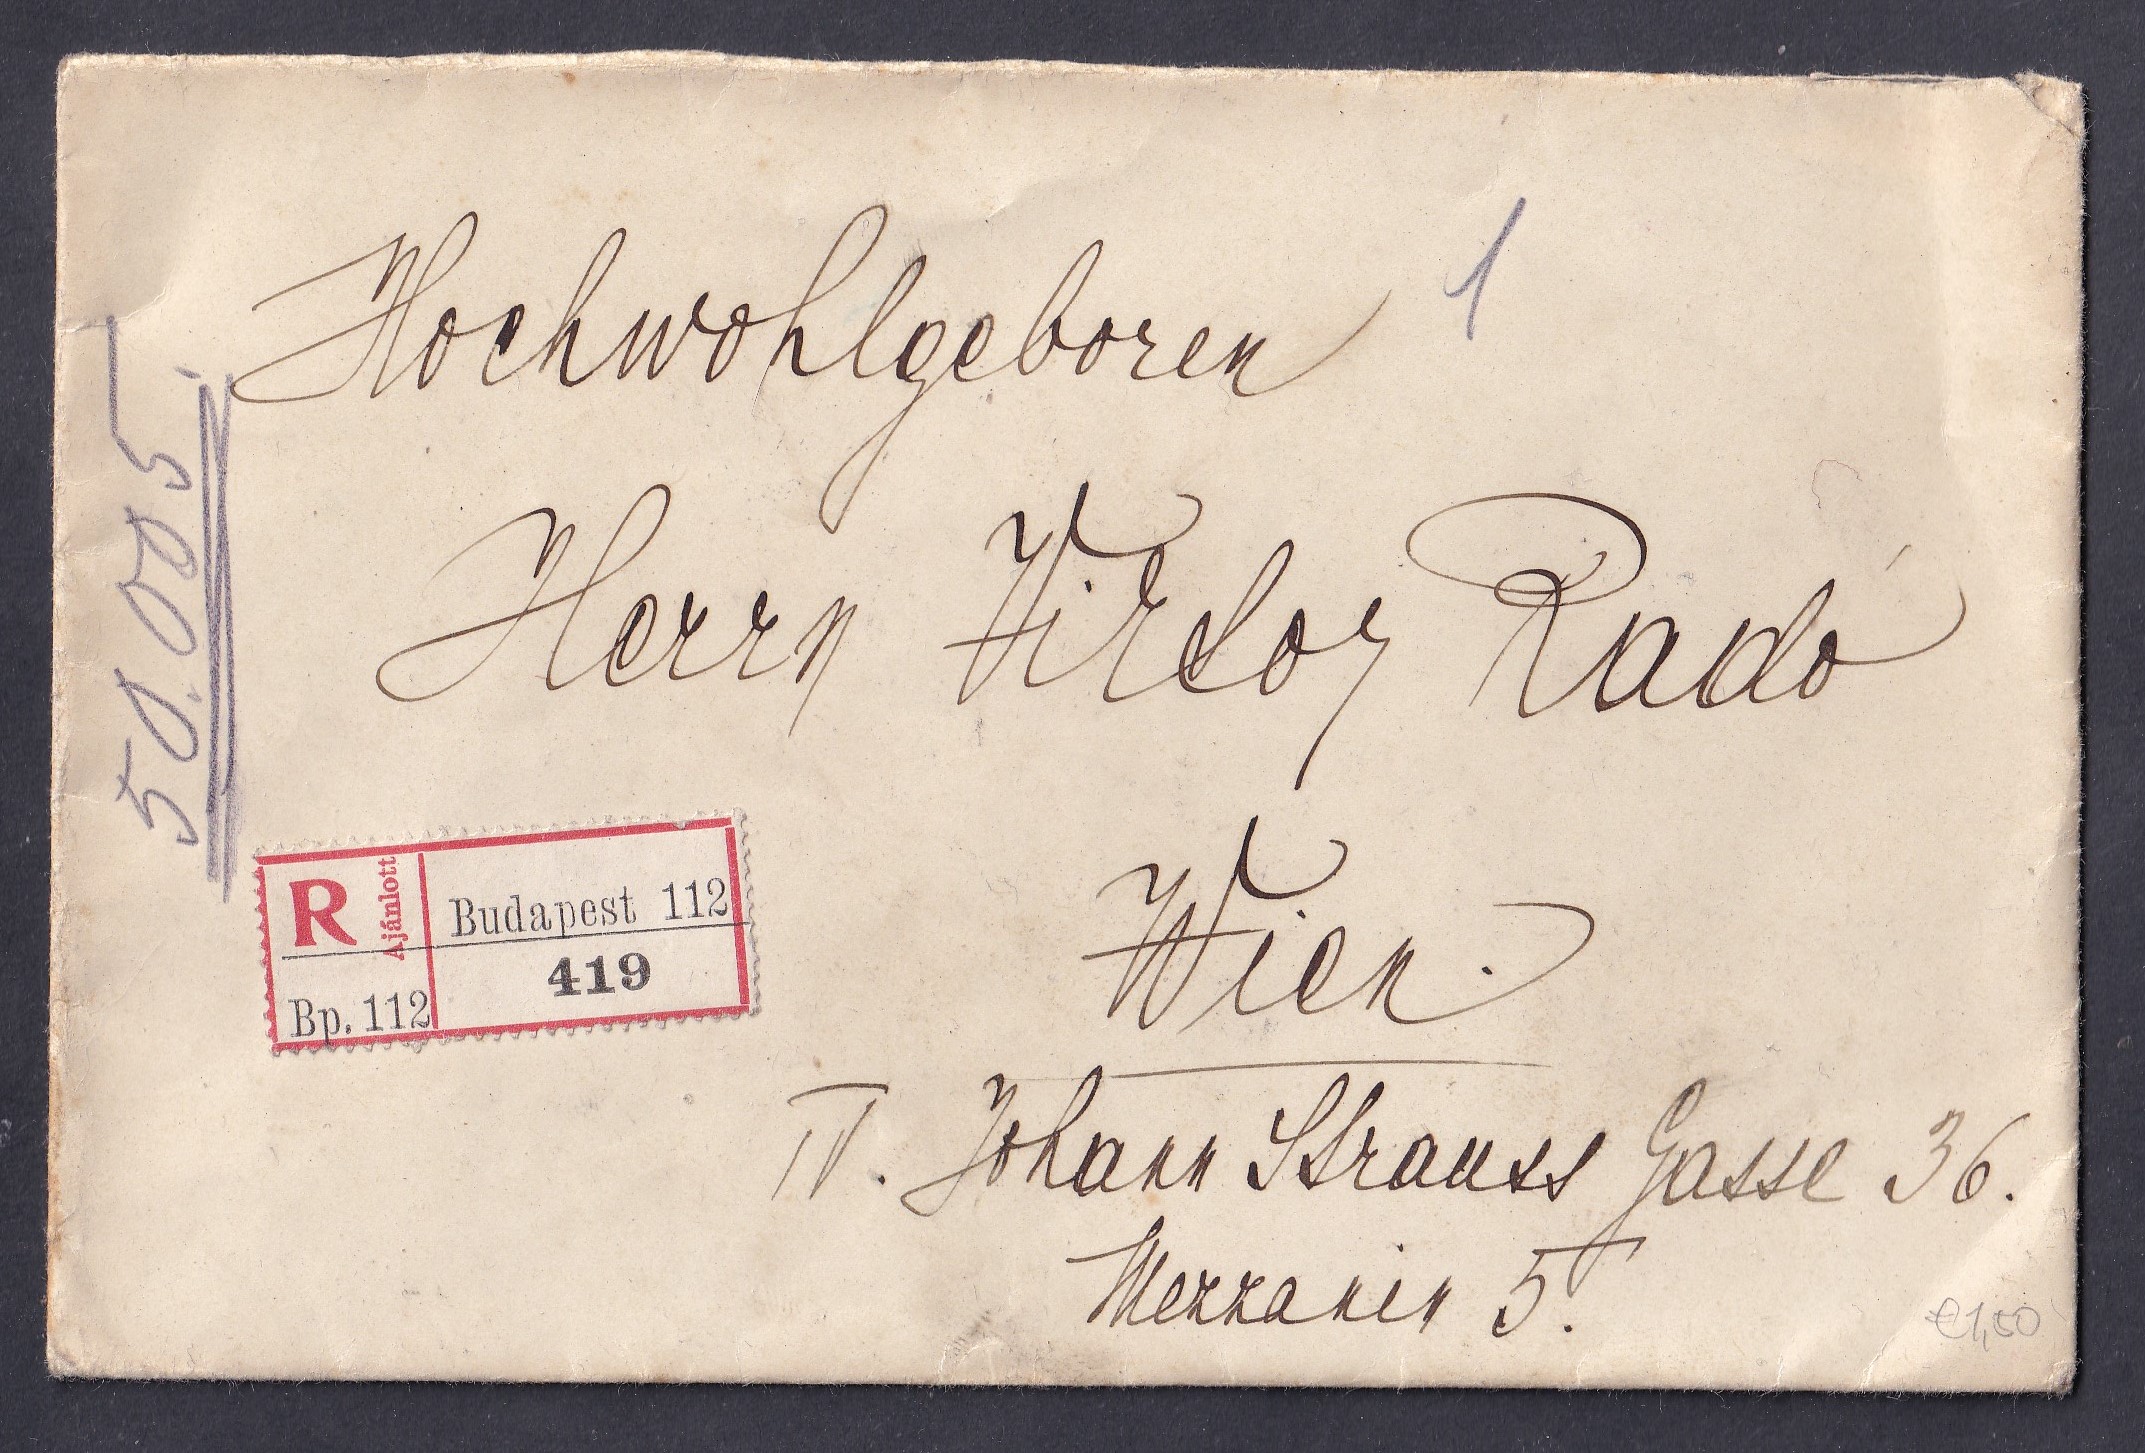 Hochwohlgeboren
1
Herrn Viktor Radó
Wien.
IV. Johann Strauss Gasse 36.
Mezzanin 5.
50.005.
R Ajánlott
Budapest 112
419
Bp. 112
€1,50